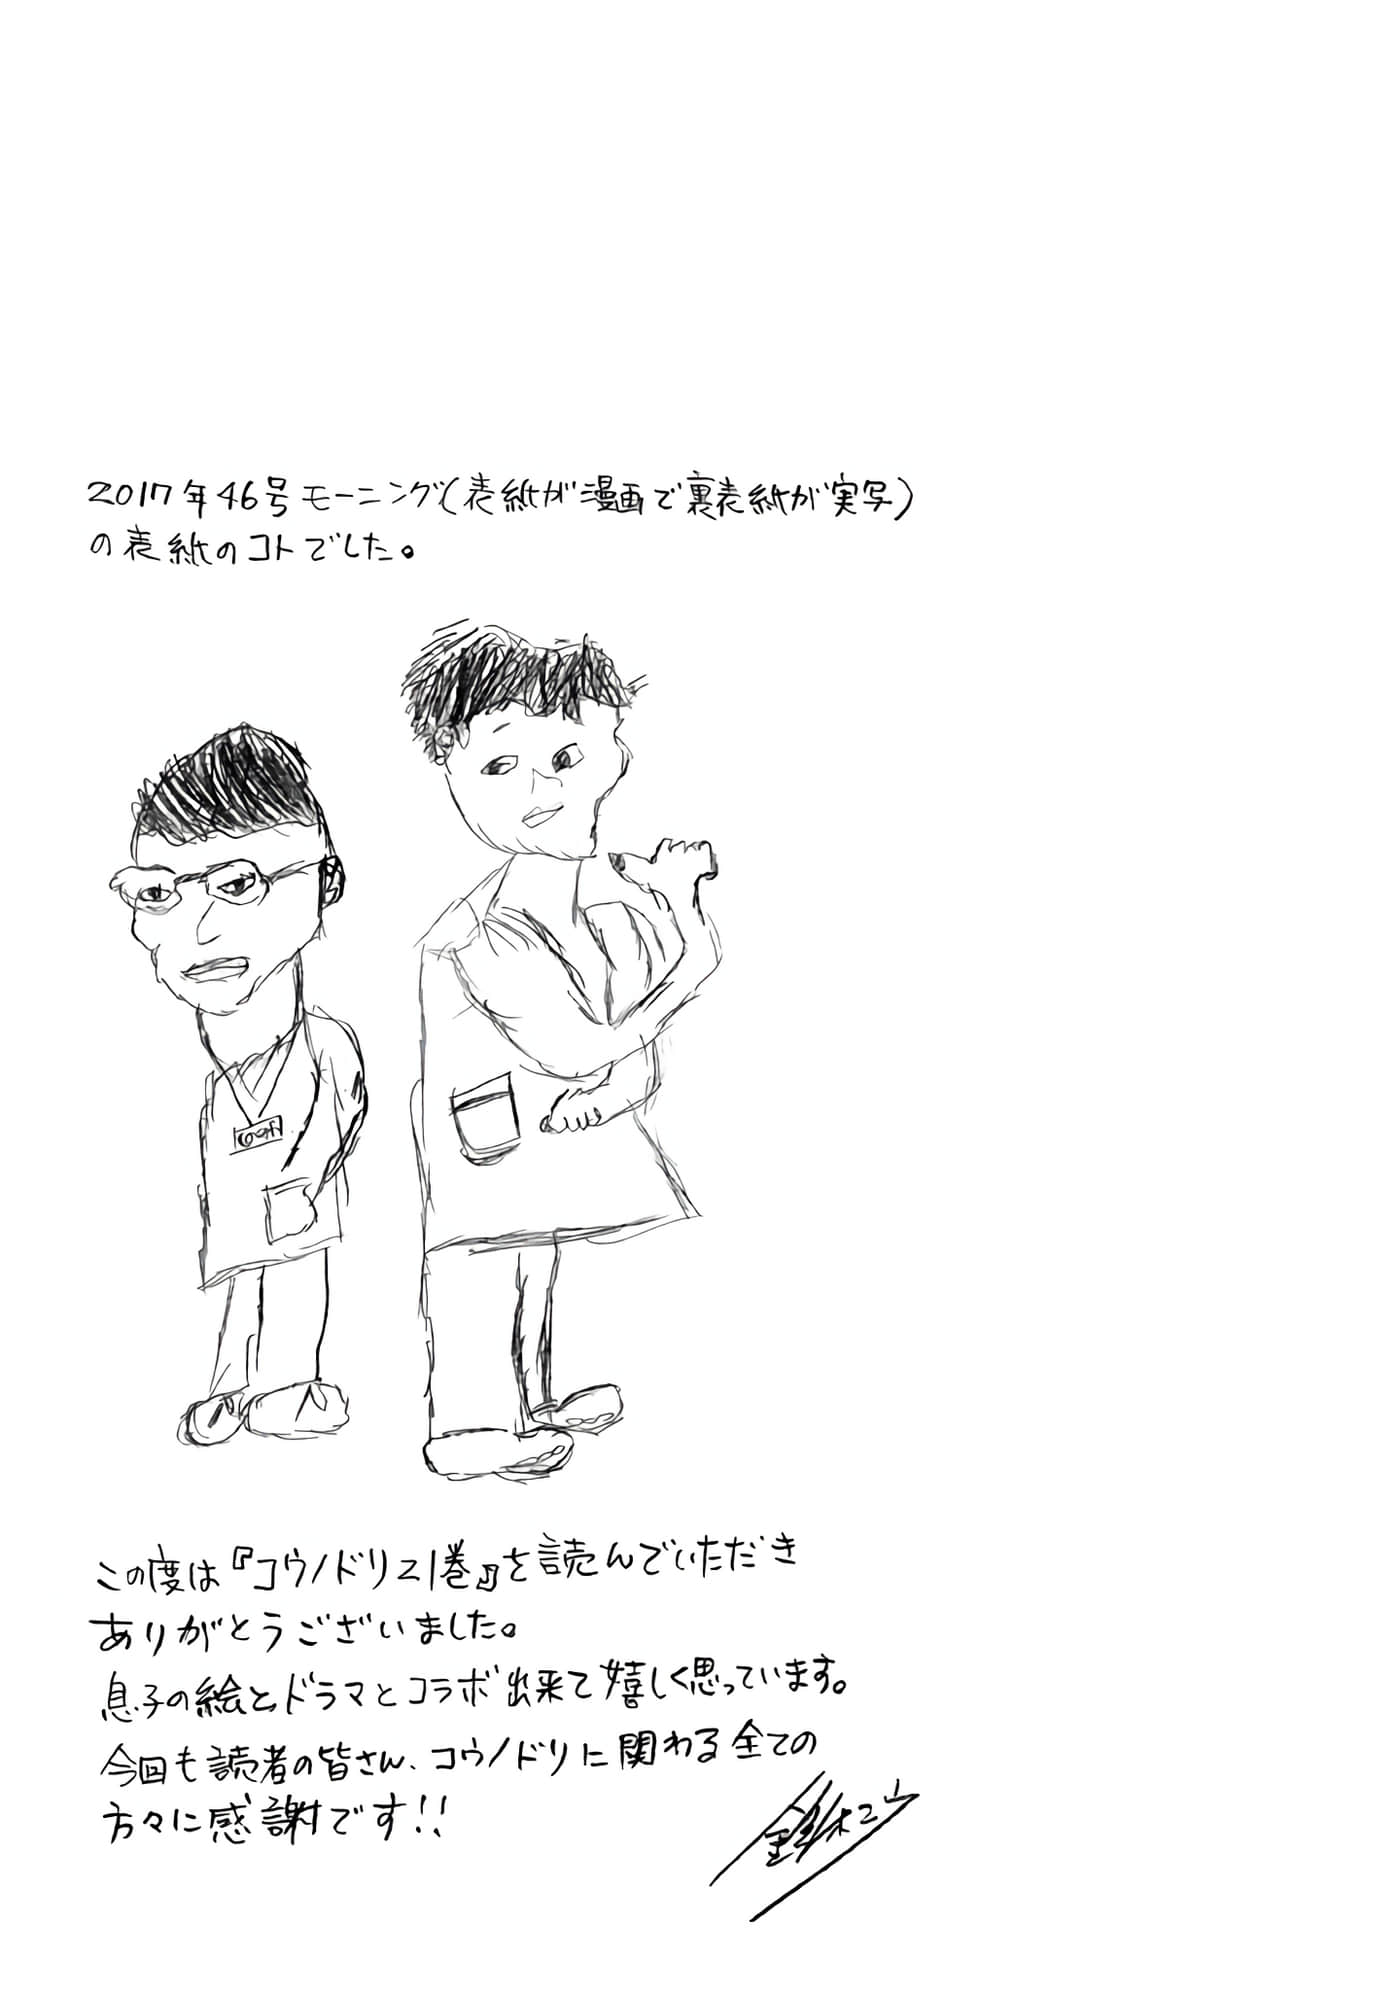 2017年46号モーニング(表紙が漫画で裏表紙が実写)
の表紙のコトでした。
この度は『コウノドリ21巻』を読んでいただき
ありがとうございました。
息子の絵とドラマとコラボ出来て嬉しく思っています。
今回も読者の皆さん、コウノドリに関わる全ての
方々に感謝です!!
鈴木ユウ